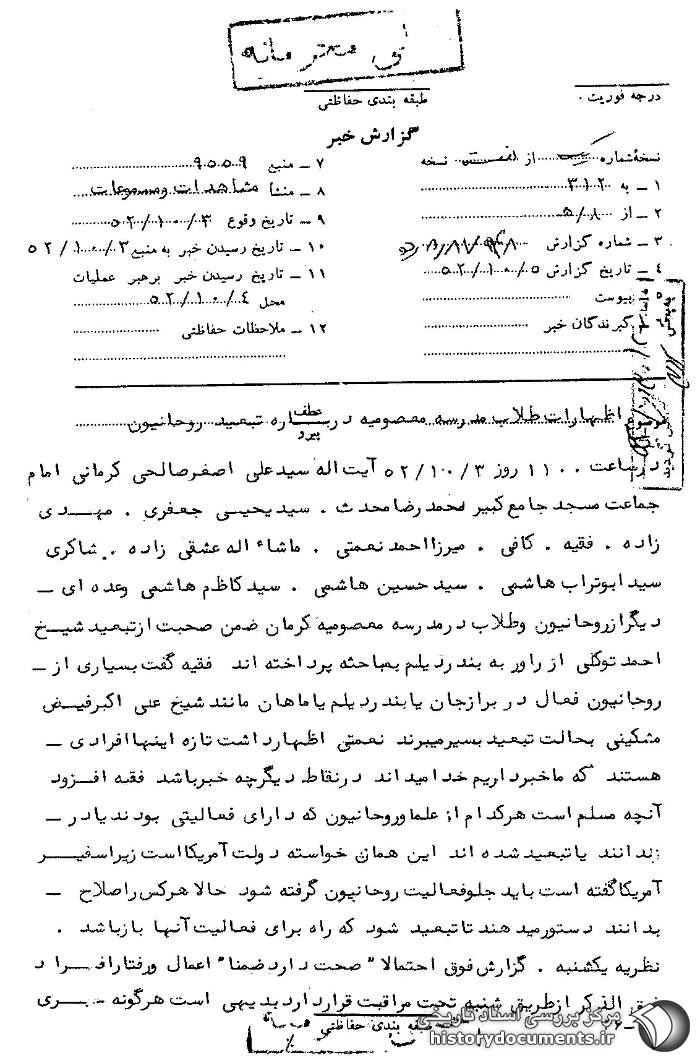 طبقه بندی حفاظتی
درجه فوریت
گزارش خبر
نسخهٔ شماره یک از نسخه
۱ ـ به ۳۱۲
۲ ـ از ۸/ه
۳ ـ شماره گزارش
۴ ـ تاریخ گزارش ۵۲/۱۰/۵
پیوست
گیرندگان خبر
۷ ـ منبع ۹۵۵۹
۸ ـ منشأ مشاهدات ومسموعات
۹ ـ تاریخ وقوع ۵۲/۱۰/۳
۱۰ ـ تاریخ رسیدن خبر به منبع ۵۲/۱۰/۳
۱۱ ـ تاریخ رسیدن خبر برهبر عملیات
محل ۵۲/۱۰/۴
۱۲ ـ ملاحظات حفاظتی
عطف
پیرو
اظهارات طلاب مدرسه معصومیه درباره تبعید روحانیون
درساعت ۱۱۰۰ روز ۵۲/۱۰/۳ آیت اله سیدعلی اصغرصالحی کرمانی امام
جماعت مسجد جامع کبیر محمدرضا محدث . سیدیحیی جعفری . مهدی
زاده . فقیه . کافی . میرزااحمدنعمتی . ماشاء اله عشقی زاده . شاکری
سیدابوتراب هاشمی . سیدحسین هاشمی . سیدکاظم هاشمی وعده ای ـ
دیگرازروحانیون وطلاب درمدرسه معصومیه کرمان ضمن صحبت ازتبعیدشیخ
احمدتوکلی از راور به بندردیلم بمباحثه پرداخته اند فقیه گفت بسیاری از ـ
روحانیون فعال در برازجان یابندردیلم یاماهان مانندشیخ علی اکبرفیض
مشکینی بحالت تبعیدبسیرمیبرند نعمتی اظهارداشت تازه اینهاافرادی ـ
هستند که ماخبرداریم خدامیداند درنقاط دیگرچه خبرباشد فقیه افزود
آنچه مسلم است هرکدام از علماوروحانیون که دارای فعالیتی بودندیادر ـ
زندانند یاتبعیدشده اند این همان خواسته دولت آمریکااست زیراسفیر
آمریکاگفته است باید جلوفعالیت روحانیون گرفته شود حالا هرکس راصلاح ـ
بدانند دستورمیدهندتاتبعید شود که راه برای فعالیت آنها بازباشد .
نظریه یکشنبه . گزارش فوق احتمالا" صحت داردضمنا" اعمال ورفتارافراد
فوق الذکر ازطریق شنبه تحت مراقبت قرارداردبدیهی است هرگونه ـ
طبقه بندی حفاظتی
مرکز بررسی اسناد تاریخی
historydocuments.ir